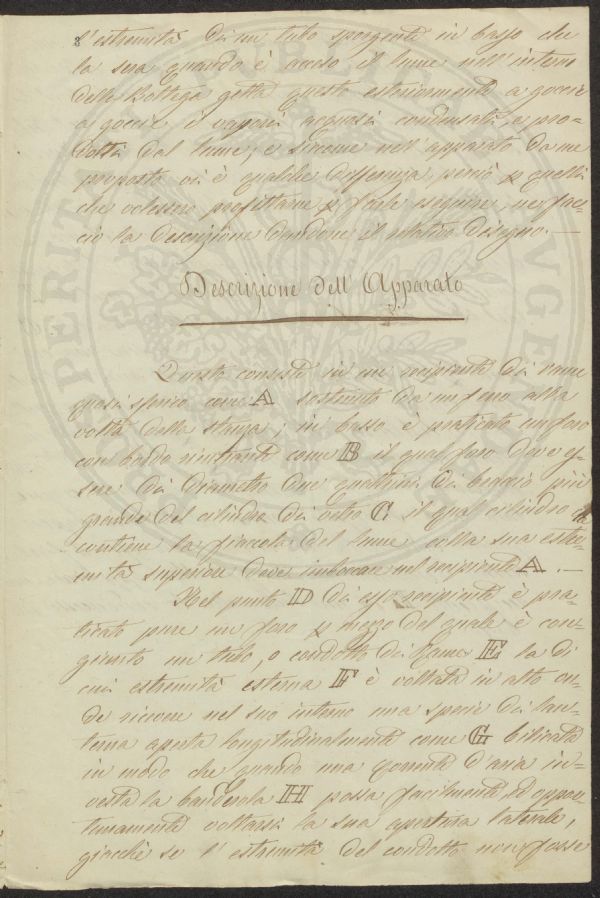 8
l'estremità di un tubo sporgente in basso che
la sera quando è acceso il lume nell'interno
della Bottega getta questo esteriormente a goccie
a goccie i vapori acquosi condensati, e pro-
dotti dal lume, e siccome nell'apparato da me
proposto vi è qualche differenza perciò p quelli
che volessero profittarne p farlo eseguire, ne fac-
cio la descrizione dandone il relativo disegno. —
Descrizione dell'Apparato
Questo consiste in un recipiente di rame
quasi sferico come A sostenuto da un ferro alla
volta della stanza; in basso è praticato un foro
con bordo rientrante come B il qual foro deve es-
sere di diametro due quattrini di braccio più
grande del cilindro di vetro C il qual cilindro che
contiene la fiaccola del lume colla sua estre-
mità superiore deve imboccare nel recipiente A. —
Nel punto D di esso recipiente è pra-
ticato pure un foro p mezzo del quale è con-
giunto un tubo, o condotto di Rame E la di
cui estremità esterna F è voltata in alto on-
de ricevere nel suo interno una specie di lan-
terna aperta longitudinalmente come G bilicata
in modo che quando una corrente d'aria in-
veste la banderola H possa facilmente, ed oppor-
tunamente voltarsi la sua apertura laterale,
giacchè se l'estremità del condotto non fosse